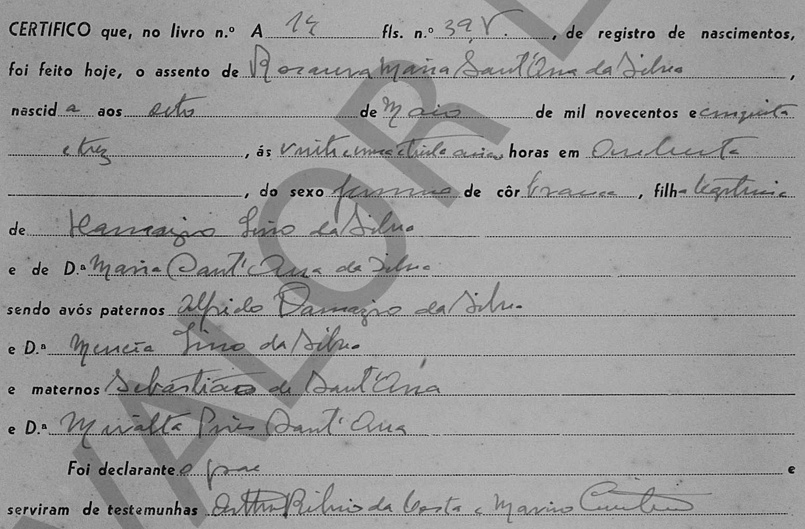 CERTIFICO que, no livro n.º A 14 fls. n.º 39 V., de registro de nascimentos,
foi feito hoje, o assento de Rosaura Maria Sant'Ana da Silva,
nascida aos oito de Maio de mil novecentos e cinquenta
e trez, ás vinte e uma e trinta horas em
, do sexo feminino de côr branca, filha legitima
de Lino da Silva
e de D.ª Maria Sant'Ana da Silva
sendo avós paternos Alfredo Damazio da Silva
e D.ª Mercia Lino da Silva
e maternos Sebastião de Sant'Ana
e D.ª Pires Sant'Ana
Foi declarante o pae e
serviram de testemunhas Arthur Ribeiro da Costa e Marino
VALOR